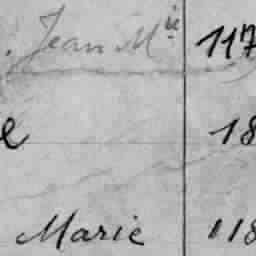 Jean Mie 117
e 18
Marie 118